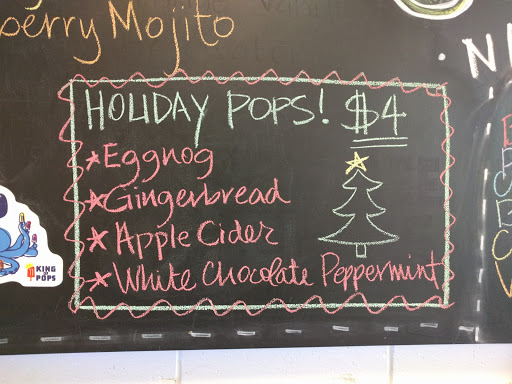 berry Mojito
HOLIDAY POPS! $4
Eggnog
Gingerbread
Apple Cider
White Chocolate Peppermint
KING
OF
POPS